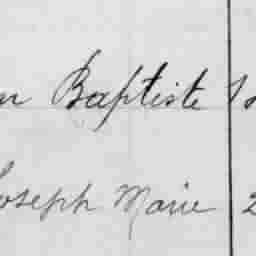 n Baptiste 1
Joseph Marie 2